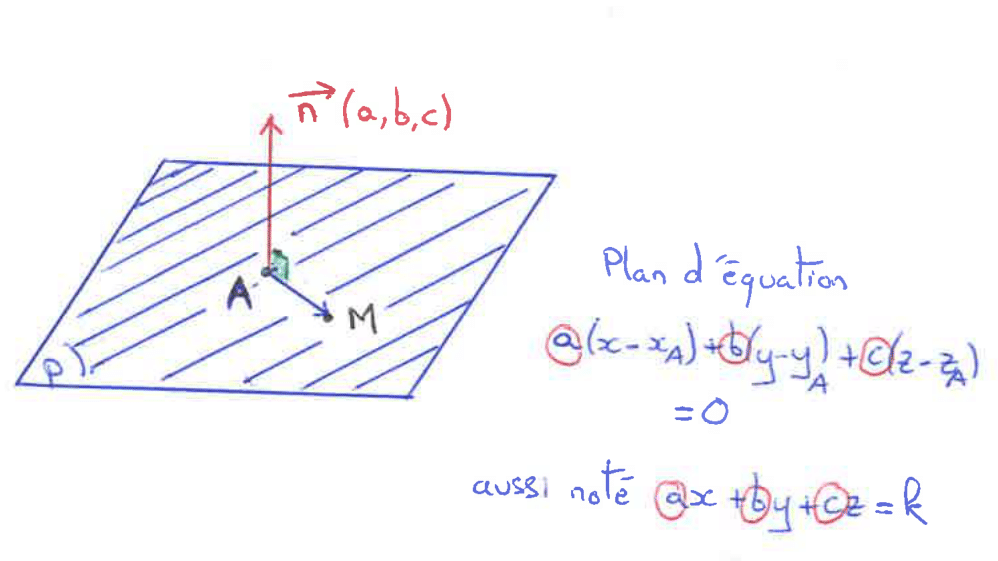 n⃗ (a,b,c)
A
M
P
Plan d'équation
a(x-x_A)+b(y-y_A)+c(z-z_A)
=0
aussi noté ax+by+cz=k